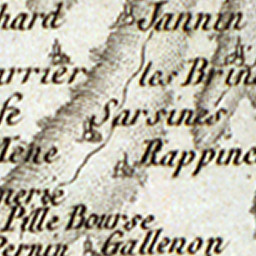 hard Jannin
arrier les Brin
fe Sarsines
Mene Rappinc
nerie
Pille Bourse
Pernin Gallenon